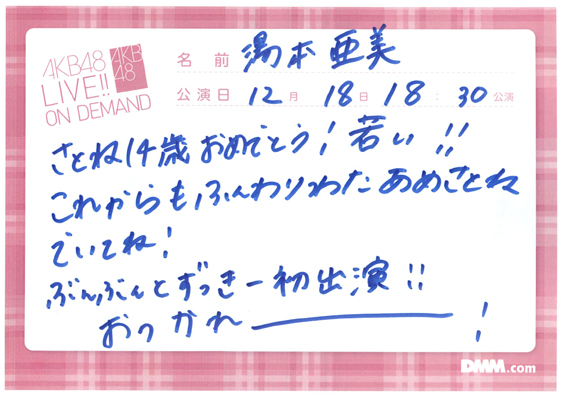 AKB48
LIVE!!
ON DEMAND
AKB
48
名前 湯本亜美
公演日 12月 18日 18:30公演
さとね14歳おめでとう!若い!!
これからもふんわりわたあめさとね
でいてね!
ぶんぶんとずっきー初出演!!
おつかれー!
DMM.com